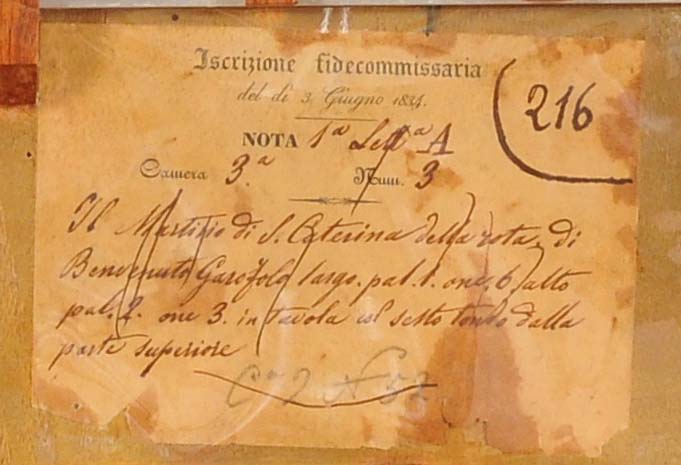 Iscrizione fidecommissaria
del dì 3. Giugno 1834.
216
NOTA 1ª Lettª A
Camera 3.ª Num. 3
Il Martirio di S. Caterina della rota, di
Benvenuto Garofolo largo. pal. 1. onc. 6. alto
pal. 2. onc 3. in Tavola col sesto tondo dalla
parte superiore
Cª 2 N 52